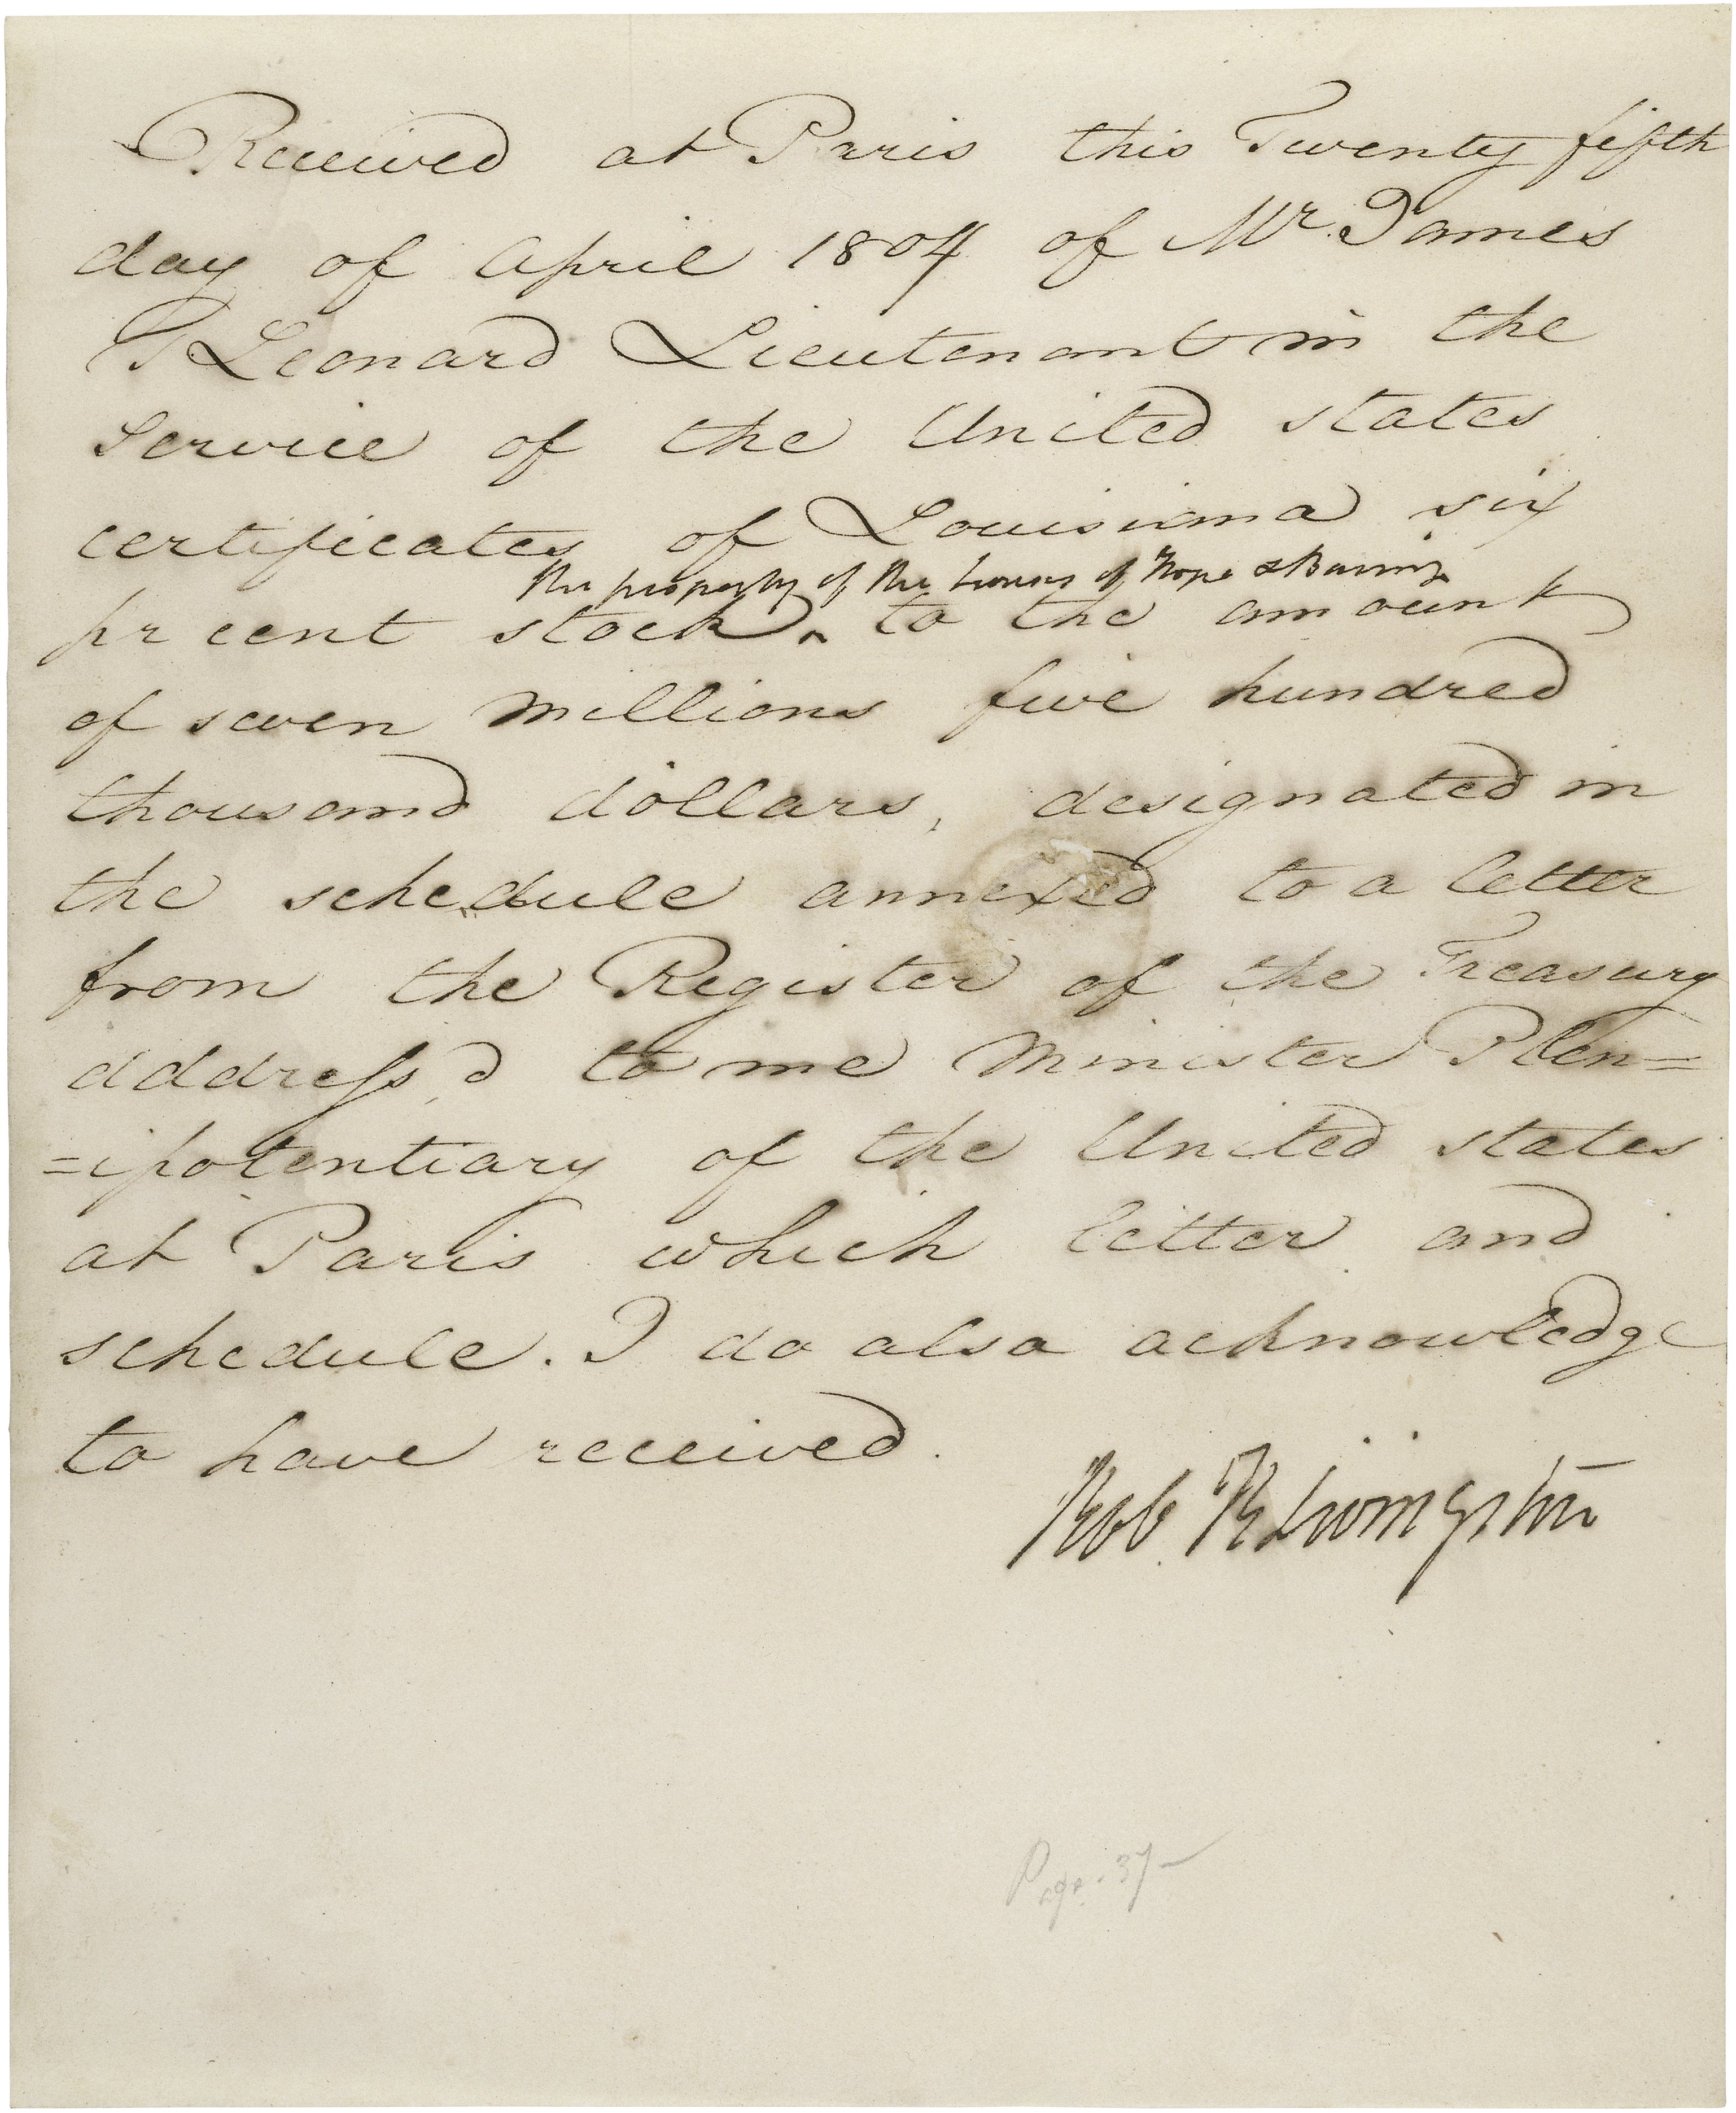 Received at Paris this Twenty fifth
day of April 1804 of Mr. James
T Leonard Lieutenant in the
Service of the United states
certificates of Louisiana six
the property of the houses of Hope & Baring
pr cent stock ^ to the amount
of seven millions five hundred
thousand dollars, designated in
the schedule annexed to a letter
from the Register of the Treasury
address'd to me Minister Plen=
=ipotentiary of the United states
at Paris which letter and
schedule. I do also acknowledge
to have received.
Rob R Livingston
Page. 37-